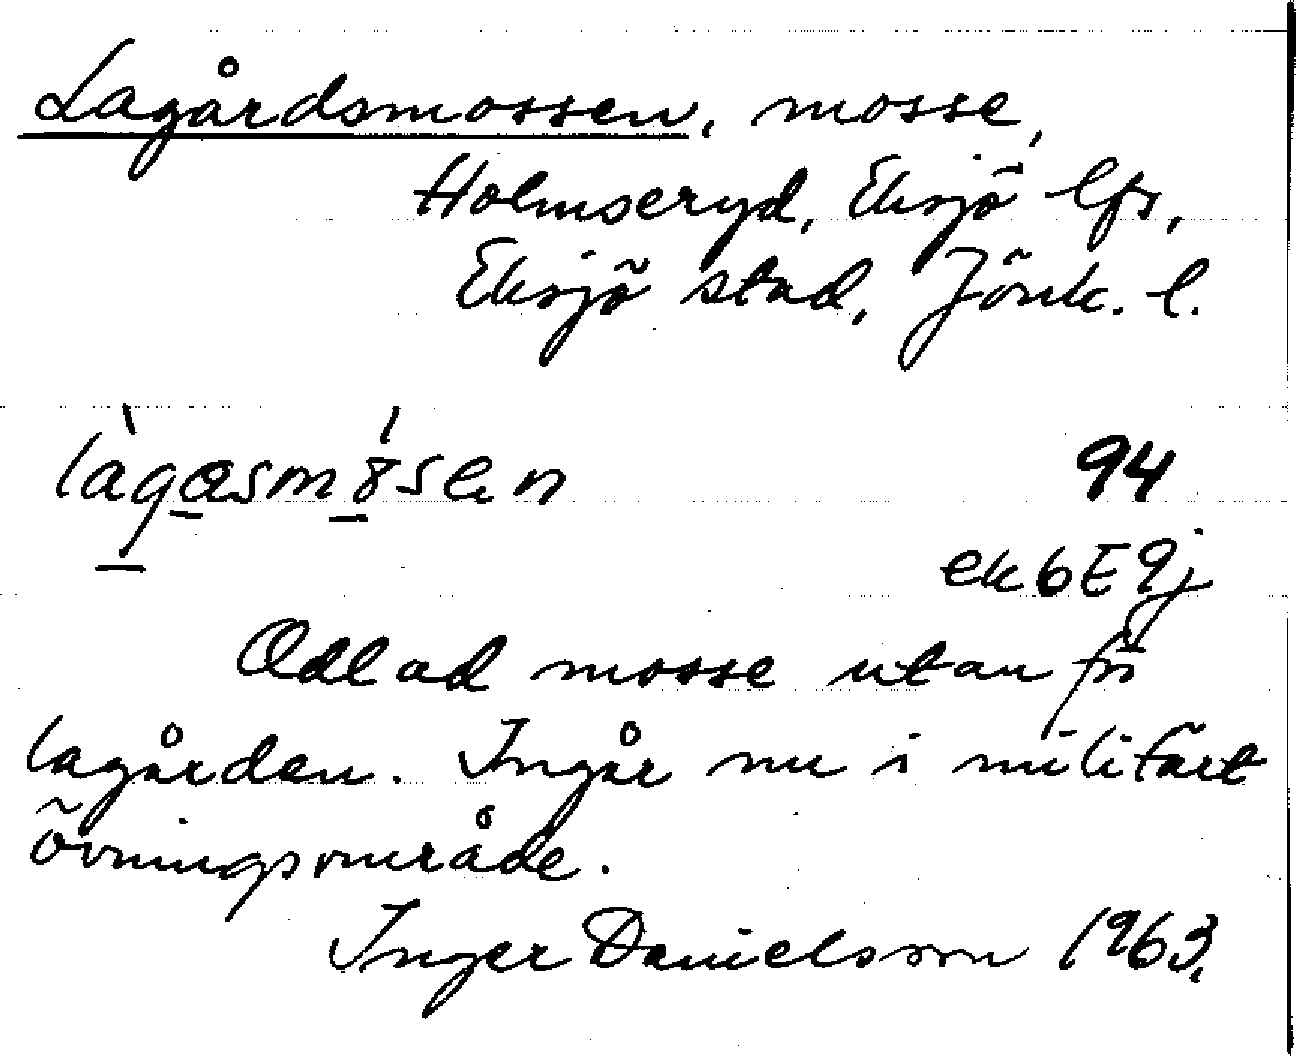 Lagårdsmossen, mosse,
Holmseryd, Eksjö lfs,
Eksjö stad, Jönk. l.
94
ek 6E9j
Odlad mosse utanför
lagården. Ingår nu i militärt
övningsområde.
Inger Danielsson 1963.